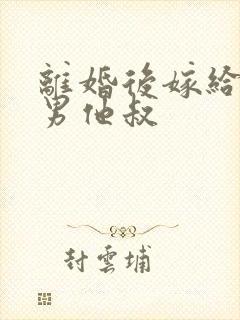 離婚後嫁給
男他叔
封雲埔